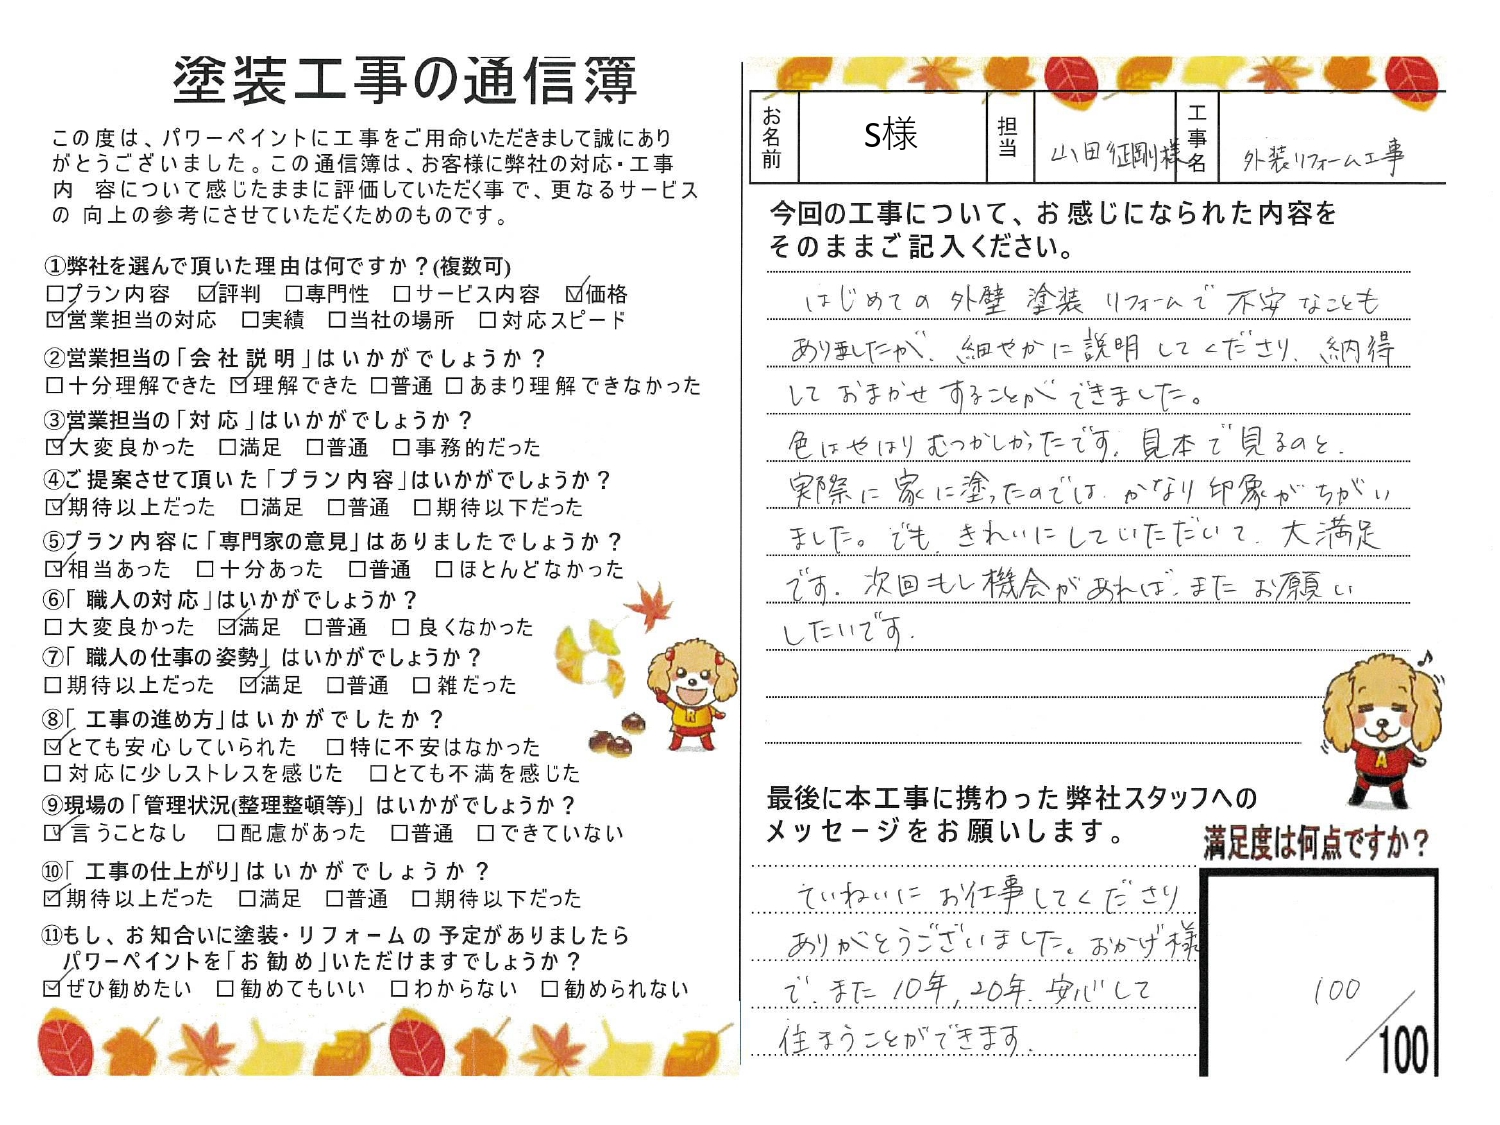 塗装工事の通信簿
この度は、パワーペイントに工事をご用命いただきまして誠にあり
がとうございました。この通信簿は、お客様に弊社の対応・工事
内 容について感じたままに評価していただく事で、更なるサービス
の 向上の参考にさせていただくためのものです。
①弊社を選んで頂いた理由は何ですか？(複数可)
□プラン内容 ☑評判 □専門性 □サービス内容 ☑価格
☑営業担当の対応 □実績 □当社の場所 □対応スピード
②営業担当の「会社説明」はいかがでしょうか？
□十分理解できた ☑理解できた □普通 □あまり理解できなかった
③営業担当の「対応」はいかがでしょうか？
☑大変良かった □満足 □普通 □事務的だった
④ご提案させて頂いた「プラン内容」はいかがでしょうか？
☑期待以上だった □満足 □普通 □期待以下だった
⑤プラン内容に「専門家の意見」はありましたでしょうか？
☑相当あった □十分あった □普通 □ほとんどなかった
⑥「職人の対応」はいかがでしょうか？
□大変良かった ☑満足 □普通 □良くなかった
⑦「職人の仕事の姿勢」はいかがでしょうか？
□期待以上だった ☑満足 □普通 □雑だった
⑧「工事の進め方」はいかがでしたか？
☑とても安心していられた □特に不安はなかった
□対応に少しストレスを感じた □とても不満を感じた
⑨現場の「管理状況(整理整頓等)」はいかがでしょうか？
☑言うことなし □配慮があった □普通 □できていない
⑩「工事の仕上がり」はいかがでしょうか？
☑期待以上だった □満足 □普通 □期待以下だった
⑪もし、お知合いに塗装・リフォームの予定がありましたら
パワーペイントを「お勧め」いただけますでしょうか？
☑ぜひ勧めたい □勧めてもいい □わからない □勧められない
R
お名前 S様 担当 山田征剛様 工事名 外装リフォーム工事
今回の工事について、お感じになられた内容を
そのままご記入ください。
はじめての外壁塗装リフォームで不安なことも
ありましたが、細やかに説明してくださり、納得
しておまかせすることができました。
色はやはりむつかしかったです。見本で見るのと、
実際に家に塗ったのでは、かなり印象がちがい
ました。でも、きれいにしていただいて、大満足
です。次回もし機会があれば、またお願い
したいです。
A
最後に本工事に携わった弊社スタッフへの
メッセージをお願いします。
ていねいにお仕事してくださり
ありがとうございました。おかげ様
で、また10年、20年、安心して
住まうことができます。
満足度は何点ですか？
100/100